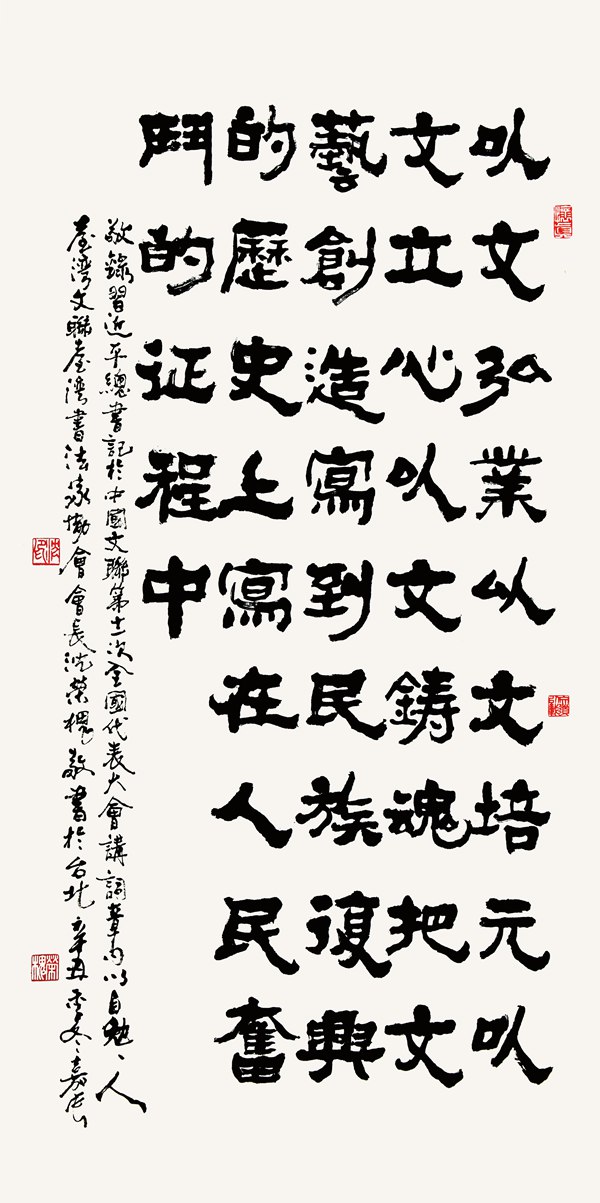 以文弘業以文培元以
文立心以文鑄魂把文
藝創造寫到民族復興
的歷史上寫在人民奮
鬥的征程中
敬錄習近平總書記於中國文聯第十一次全國代表大會講詞章句以自勉、人
臺灣文聯臺灣書法家協會會長沈榮槐敬書於台北辛丑季冬